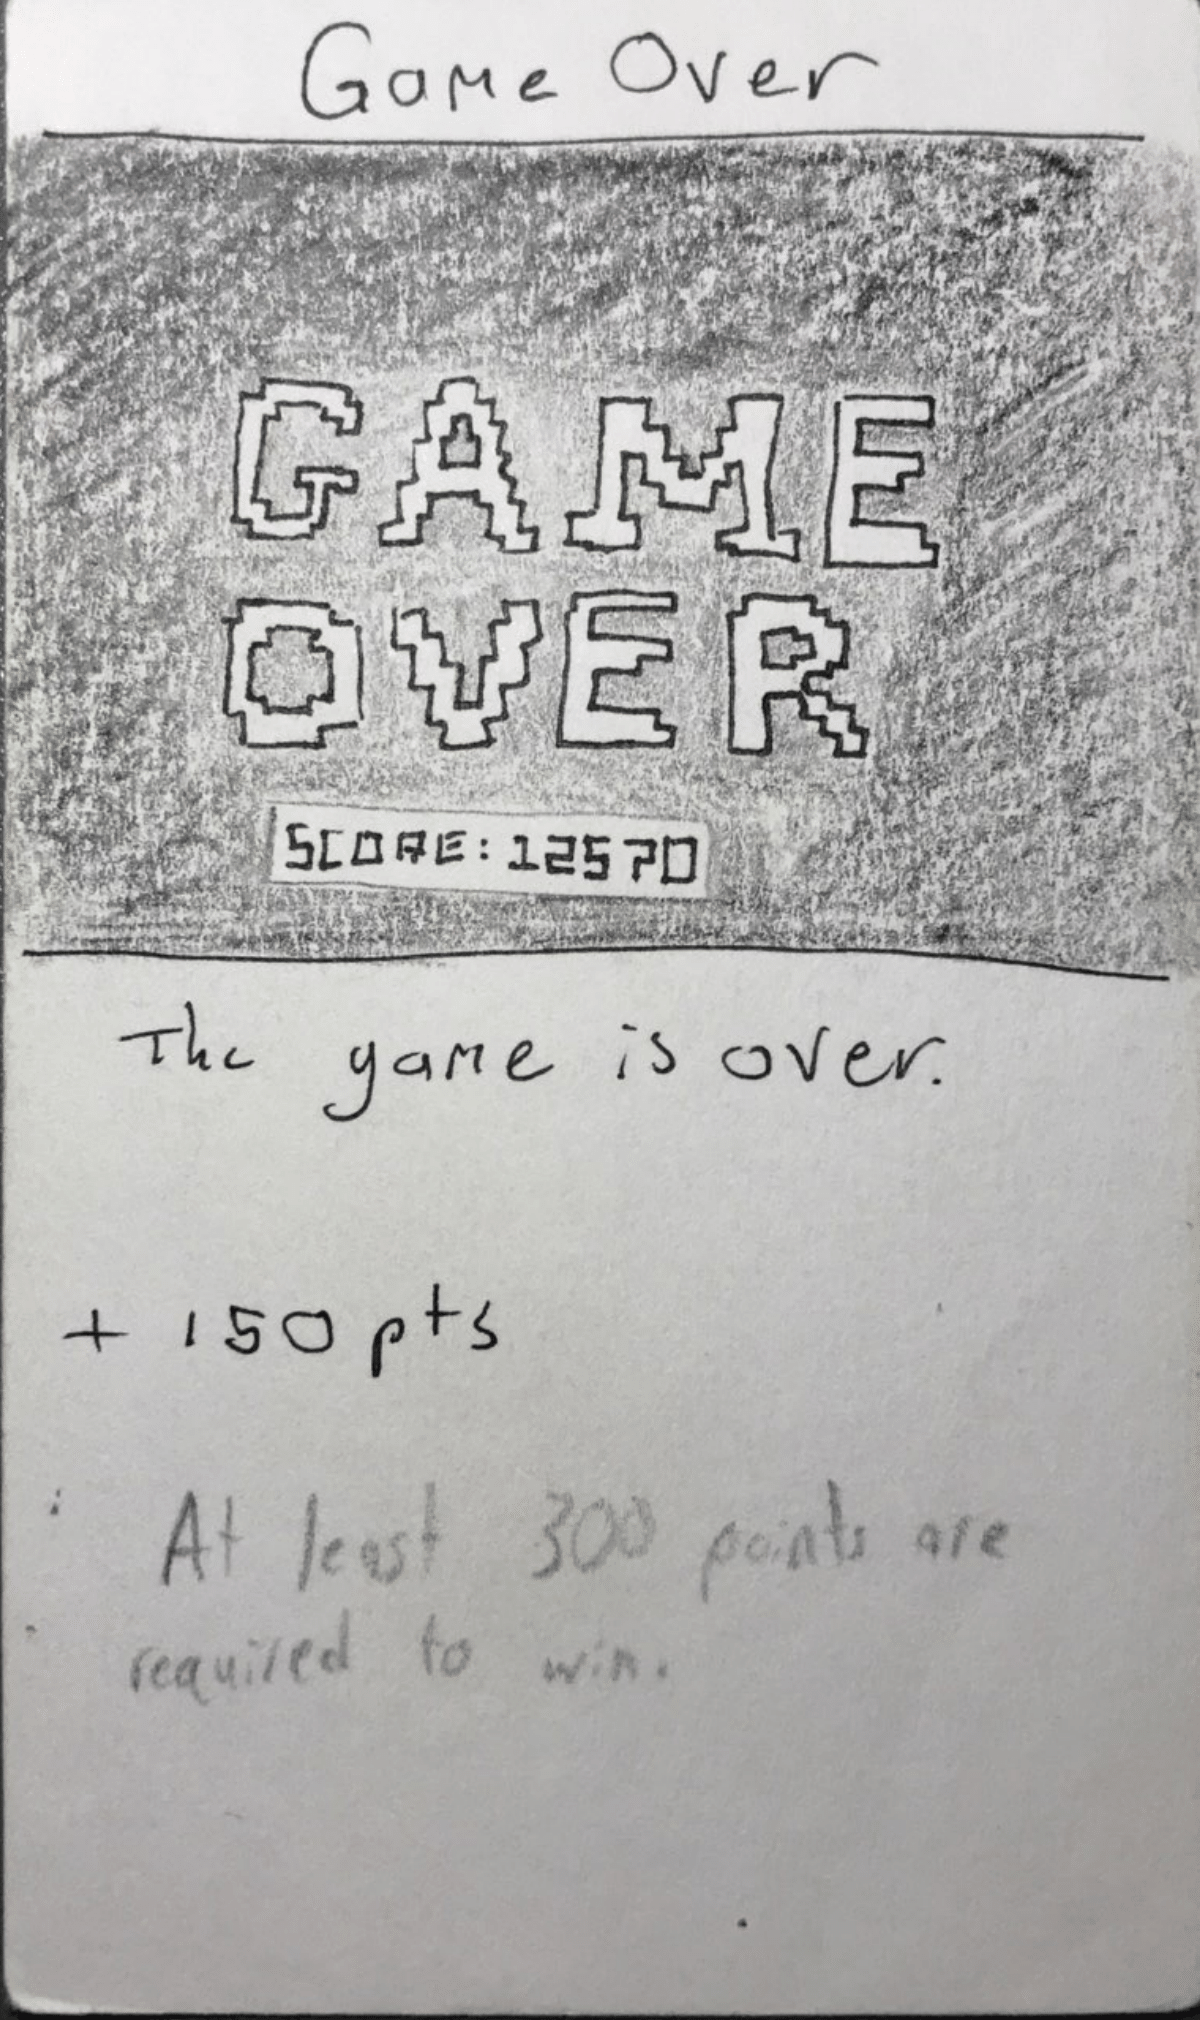 Game Over
GAME
OVER
SCORE: 12570
The game is over.
+ 150 pts
At least 300 points are
required to win.